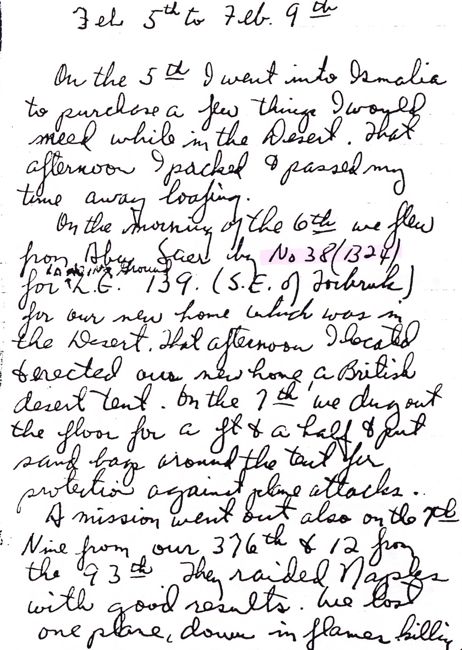 Feb 5th to Feb. 9th
On the 5th I went into Ismalia
to purchase a few things I would
need while in the Desert. That
afternoon I packed & passed my
time away loafing.
On the morning of the 6th we flew
from Abu Suer by No 38 (1324)
Landing Ground
for L.G. 139. (S.E. of Tobruk)
for our new home which was in
the Desert. That afternoon I located
& erected our new home, a British
desert tent. On the 7th we dug out
the floor for a ft & a half & put
sand bags around the tent for
protection against plane attacks.
A mission went out also on the 7th
Nine from our 376th & 12 from
the 93th They raided Naples
with good results. We lost
one plane, down in flames killing